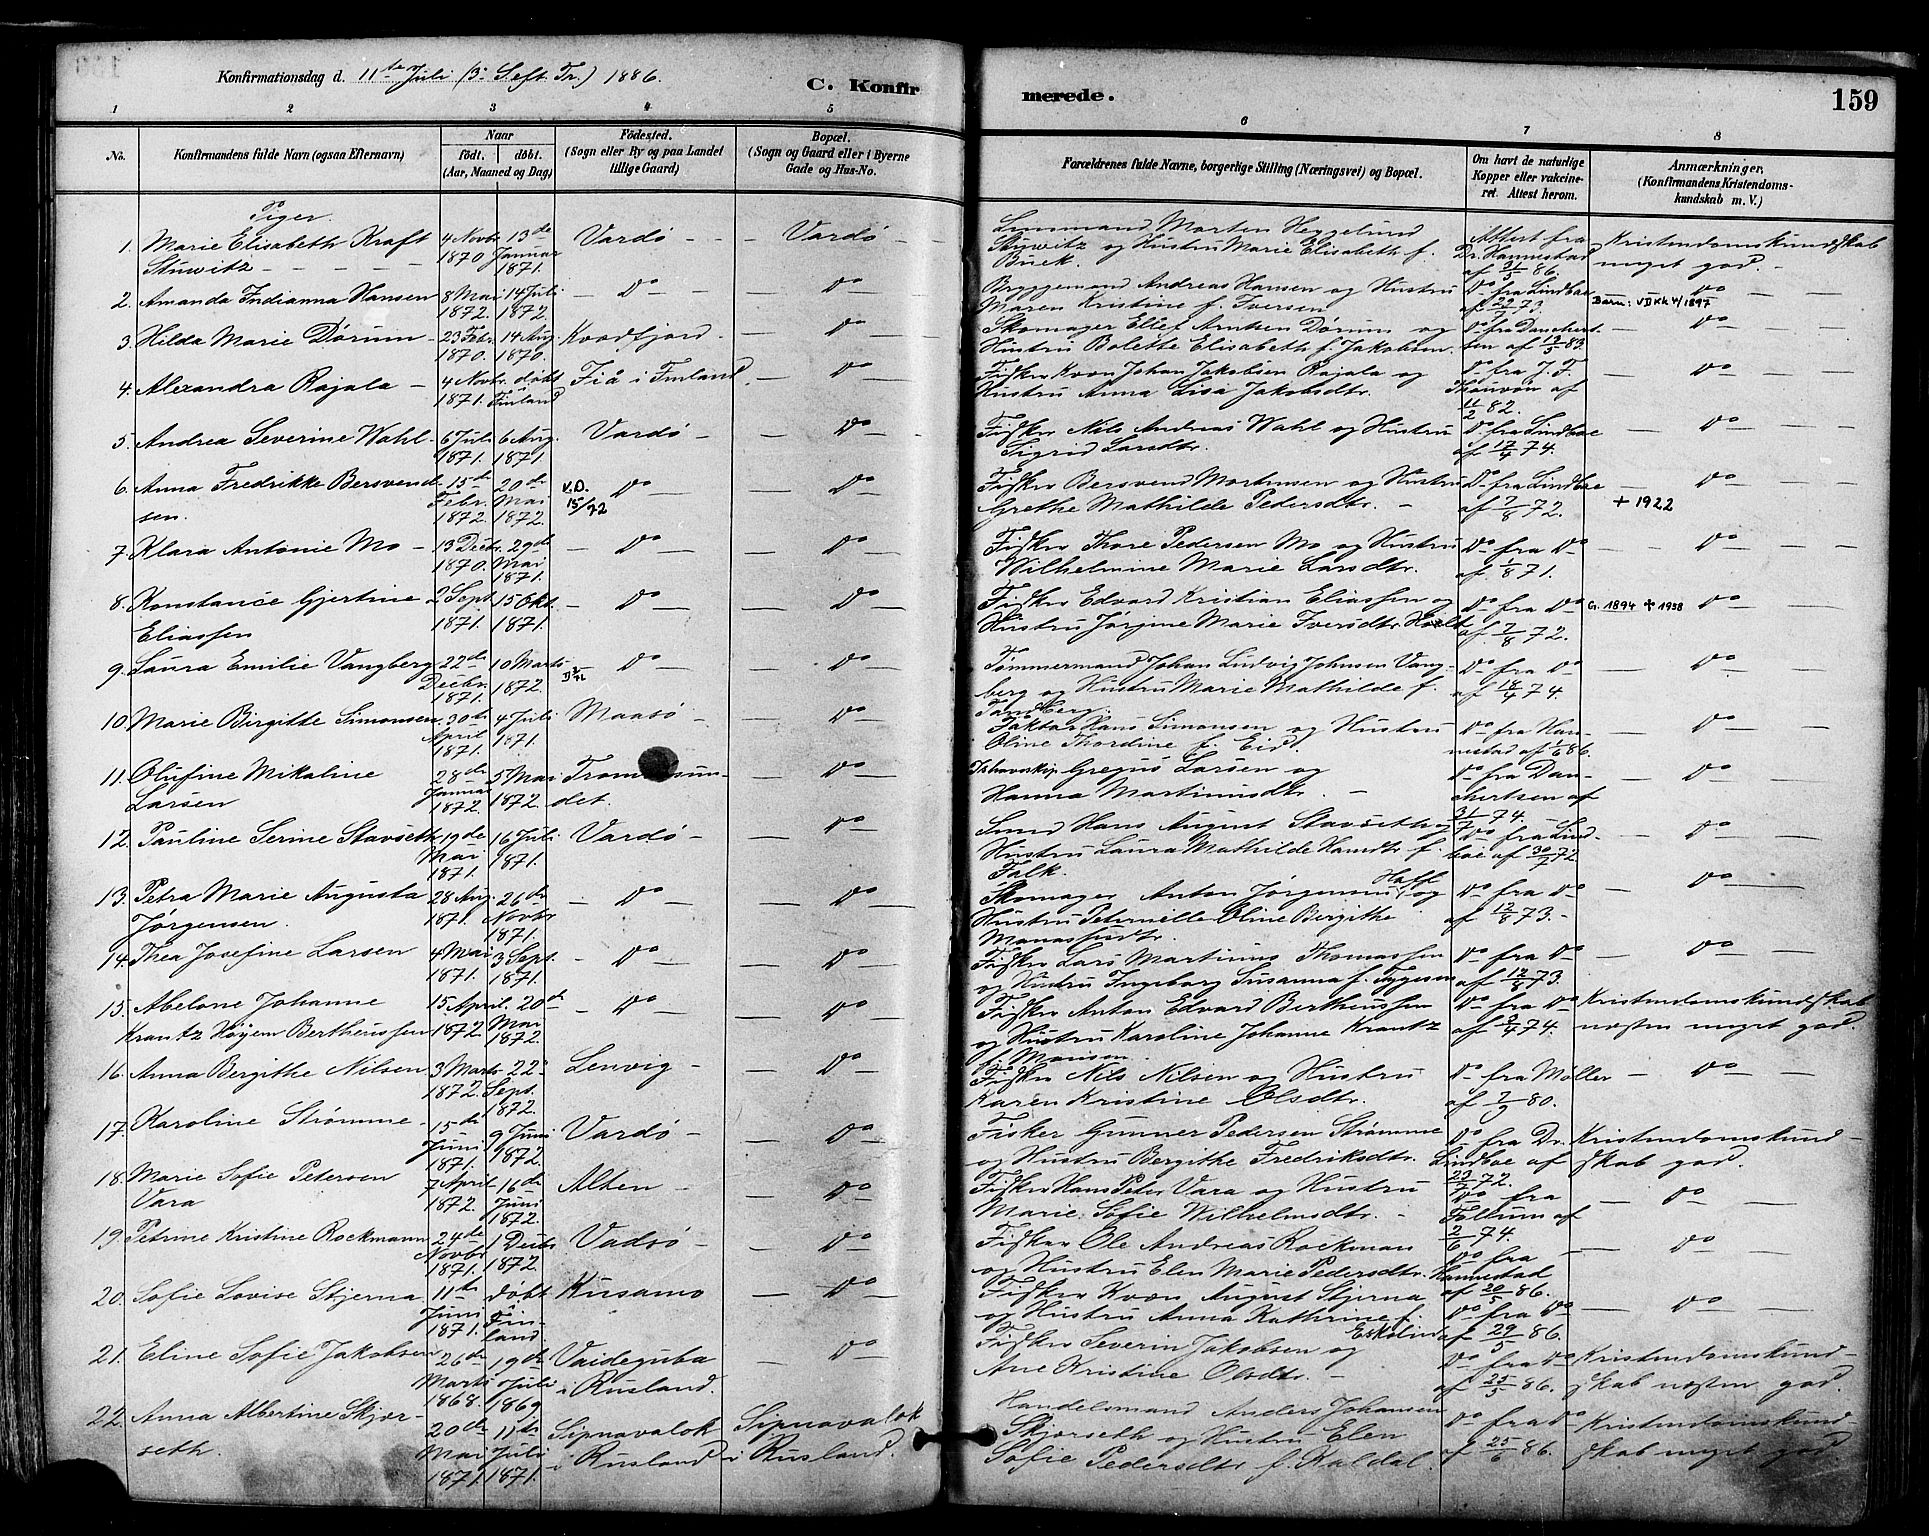 Konfirmationsdag d. 11te Juli (3. S. eft. Tr.) 1886.
C. Konfirmerede.
159
1 2 3 4 5 6 7 8
No.
Konfirmandens fulde Navn (ogsaa Efternavn)
Naar
født. døbt.
(Aar, Maaned og Dag)
Födested.
(Sogn eller By og paa Landet
tillige Gaard)
Bopæl.
(Sogn og Gaard eller i Byerne
Gade og Hus-No.
Forældrenes fulde Navne, borgerlige Stilling (Næringsvei) og Bopæl.
Om havt de naturlige
Kopper eller vakcine-
ret. Attest herom.
Anmærkninger.
(Konfirmandens Kristendoms-
kundskab m. V.)
Piger.
1. Marie Elisabeth Kraft
Stuwitz
4 Novbr 1870
13de Januar 1871.
Vardö
Vardö
Lensmand Morten Heggelund
Stuwitz og Hustru Marie Elisabeth f.
Buck.
Attest fra
Dr. Hannestad
af 31/5 86.
Kristendomskundskab
meget god.
2. Amanda Indianna Hansen
8 Mai 1872.
14 Juli 1872.
Do
Do
Bryggemand Andreas Hansen og Hustru
Maren Kristine f. Iversen
Do fra Lindboe
af 22/7 73.
Do
Barn: VDKk 4/1897
3. Hilda Marie Dørum
23 Febr. 1870.
14 Aug. 1870.
Kvædfjord
Do
Skomager Ellef Arntsen Dørum og
Hustru Bolette Elisabeth f. Jakobsen.
Do fra Danchert-
sen af 12/5 83.
Do
4. Alexandra Rajala
4 Novbr. 1871.
døbt i Finland
Fiå i Finland
Do
Fisker Kvæn Johan Jakobsen Rajala og
Hustru Anna Lisa Jakobsdtr.
Do fra J. F.
af
11/2 82.
Do
5. Andrea Severine Wahl
6 Juli 1871.
6 Aug. 1871
Vardö
Do
Fisker Nils Andreas Wahl og Hustru
Sigrid Larsdtr.
Do fra Lindboe
af 17/4 74.
Do
6. Anna Fredrikke Bersvend-
sen.
15de Febr. 1872.
20de Mai 1872.
V.D. 15/72
Do
Do
Fisker Bersvend Mortensen og Hustru
Grethe Mathilde Pedersdtr.
Do fra Lindboe
af 7/8 72.
Do
+ 1922
7. Klara Antonie Mo
13 Decbr. 1870.
29de Mai 1871.
Do
Do
Fisker Thore Pedersen Mo og Hustru
Wilhelmine Marie Larsdtr.
Do fra Do
af 1/8 71.
Do
8. Konstance Gjertine
Eliassen
2 Sept. 1871.
15 Okt. 1871.
Do
Do
Fisker Edvard Kristian Eliassen og
Hustru Jørgine Marie Iversdtr. Hoelt
Do fra Do
af 7/8 72.
G. 1894 + 1938
Do
9. Laura Emilie Vangberg
22de Decbr. 1871.
10 Marts 1872.
Do
Do
Tømmermand Johan Ludvig Johnsen Vang-
berg og Hustru Marie Mathilde f.
Tandberg.
Do fra Do
af 18/4 74.
Do
10. Marie Birgitte Simonsen
30te April 1871.
4 Juli 1871.
Maasö
Do
Hans Simonsen og Hustru
Oline Thordine f. Eid.
Do fra Han-
nestad af 1/6 86.
Do
11. Olufine Mikaline
Larsen
28de Januar 1872.
5 Mai 1872.
Tromsøsun-
det.
Do
Gregus Larsen og
Hanna Martinusdtr.
Do fra Dan-
chertsen af
31/7 74.
Do
12. Pauline Serine Stavseth
19de Mai 1871.
16 Juli 1871.
Vardö
Do
Smed Hans August Stavseth og
Hustru Laura Mathilde Hansdtr f.
Falk.
Do fra Lind-
boe af 30/7 72
Do
13. Petra Marie Augusta
Jørgensen.
28 Aug. 1871.
26de Novbr 1871.
Do
Do
Skomager Anton Jørgensen Haffl og
Hustru Peternelle Oline Bergithe
Manassesdtr.
Do fra Do
af 12/8 73.
Do
14. Thea Josefine Larsen
4 Mai 1871.
3 Sept. 1871.
Do
Do
Fisker Lars Martinus Thomassen
og Hustru Ingeborg Susanna f. Tygesen
Do fra Do
af 12/8 73.
Do
15. Abelone Johanne
Krantz Høyem Bertheussen
15 April. 1872.
20de Mai 1872.
Do
Do
Fisker Anton Edvard Bertheussen
og Hustru Karoline Johanne Krantz
f. Monsen.
Do fra Do
af 9/4 74.
Kristendomskundskab
næsten meget god.
16. Anna Bergithe Nilsen
3 Marts 1872.
22. Sept. 1872.
Lenvig
Do
Fisker Nils Nilsen og Hustru
Karen Kristine Olsdtr.
Do fra Møller
af 7/9 80.
Do
17. Karoline Strømme
15de Juni 1871.
9 Juni 1872.
Vardö
Do
Fisker Gunner Pedersen Strømme
og Hustru Bergithe Fredriksdtr.
Do fra Dr.
Lindboe af
23/7 72.
Kristendomskund-
skab god.
18. Marie Sofie Petersen
Vara
7 April 1872.
16de Juni 1872.
Alten
Do
Fisker Hans Peter Vara og Hustru
Marie Sofie Wilhelmsdtr.
Do fra
Follum af
2/6 74.
Do
19. Petrine Kristine Rockmann
24de Novbr 1871.
1 Decbr 1872.
Vadsö
Do
Fisker Ole Andreas Rockman
og Hustru Elen Marie Pedersdtr.
Do fra
Hannestad
af 20/5 86.
Do
20. Sofie Lovise Stjerna
11te Juni 1871.
døbt i Fin-
land.
Kusamo
Do
Fisker Kvæn August Stjerna
og Hustru Anna Kathrine f.
Eskelin
Do fra Do
af 29/5 86.
Do
21. Eline Sofie Jakobsen
26de Marts 1868.
19de Juli 1869
Vaideguba
i Rusland.
Do
Fisker Severin Jakobsen og
Ane Kristine Olsdtr.
Do fra Do
af 25/5 86.
Kristendomskund-
skab næsten god.
22. Anna Albertine Skjer-
seth.
20de Mai 1871.
11te Juli 1871.
Sipnavalok
i Rusland
Sipnavalok
i Rusland.
Handelsmand Anders Johansen
Skjerseth og Hustru Elen
Sofie Pedersdtr f. Kaldal.
Do fra Do
af 25/6 86.
Kristendomskund-
skab meget god.